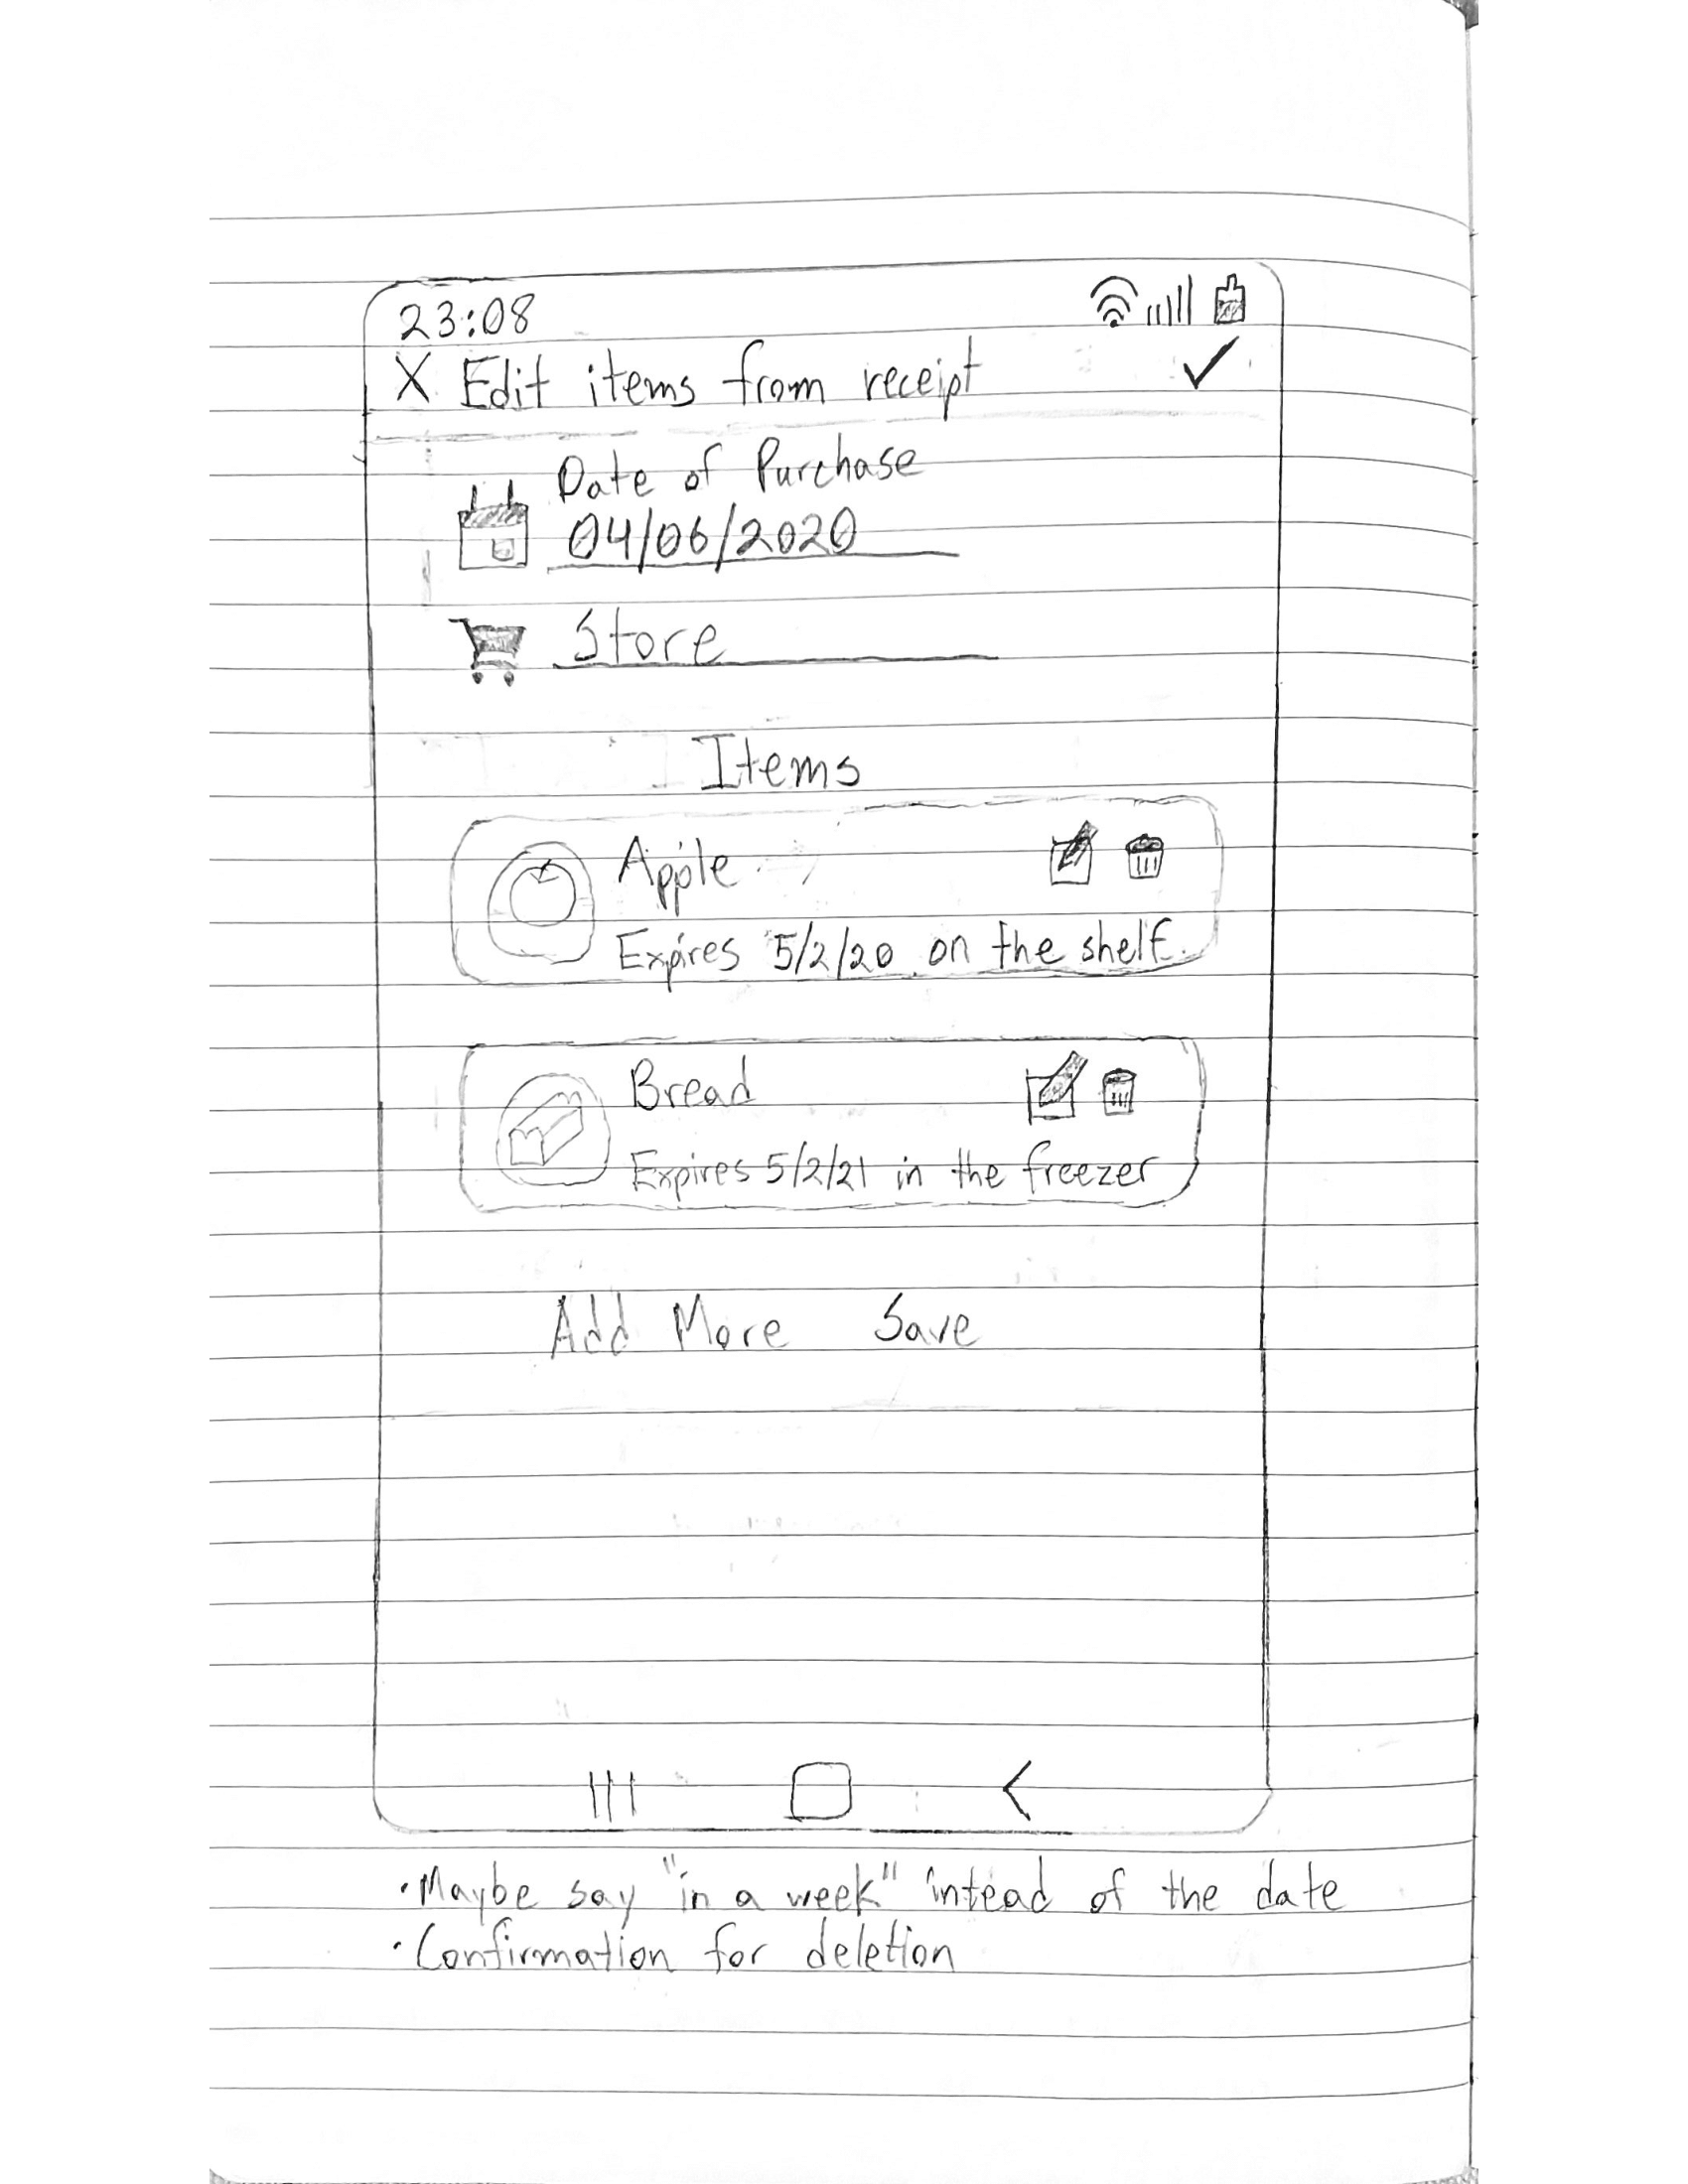 23:08
X Edit items from receipt ✓
Date of Purchase
04/06/2020
Store
Items
Apple
Expires 5/2/20 on the shelf.
Bread
Expires 5/2/21 in the freezer
Add More Save
• Maybe say "in a week" intead of the date
• Confirmation for deletion